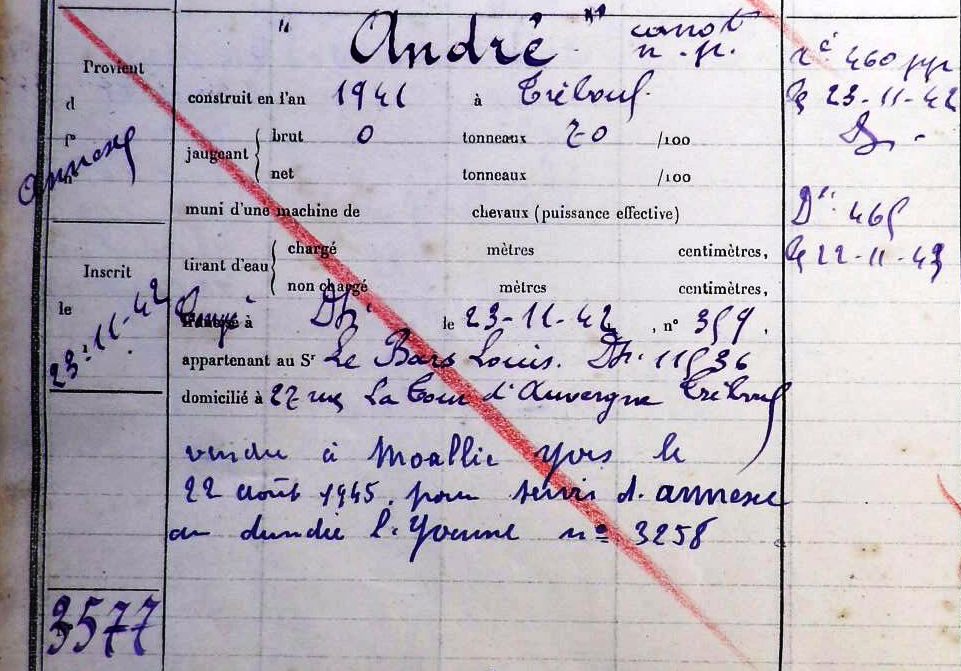 " André " canot
n.p.
Provient
d
f°
n°
annexe
construit en l'an 1941 à Tréboul.
jaugeant brut 0 tonneaux 70 /100
net tonneaux /100
muni d'une machine de chevaux (puissance effective)
tirant d'eau chargé mètres centimètres,
non chargé mètres centimètres,
à Dz. le 23-11-42, n° 359.
appartenant au Sr Le Bars Louis. Dz. 11536
domicilié à 27 rue La Tour d'Auvergne Tréboul
vendu à Moallic Yves le
22 août 1945, pour servir d'annexe
au dundee l'Yvonne n° 3258
Inscrit
le
23-11-42
3577
460
le 23-11-42
Dz.
465
le 22-11-43